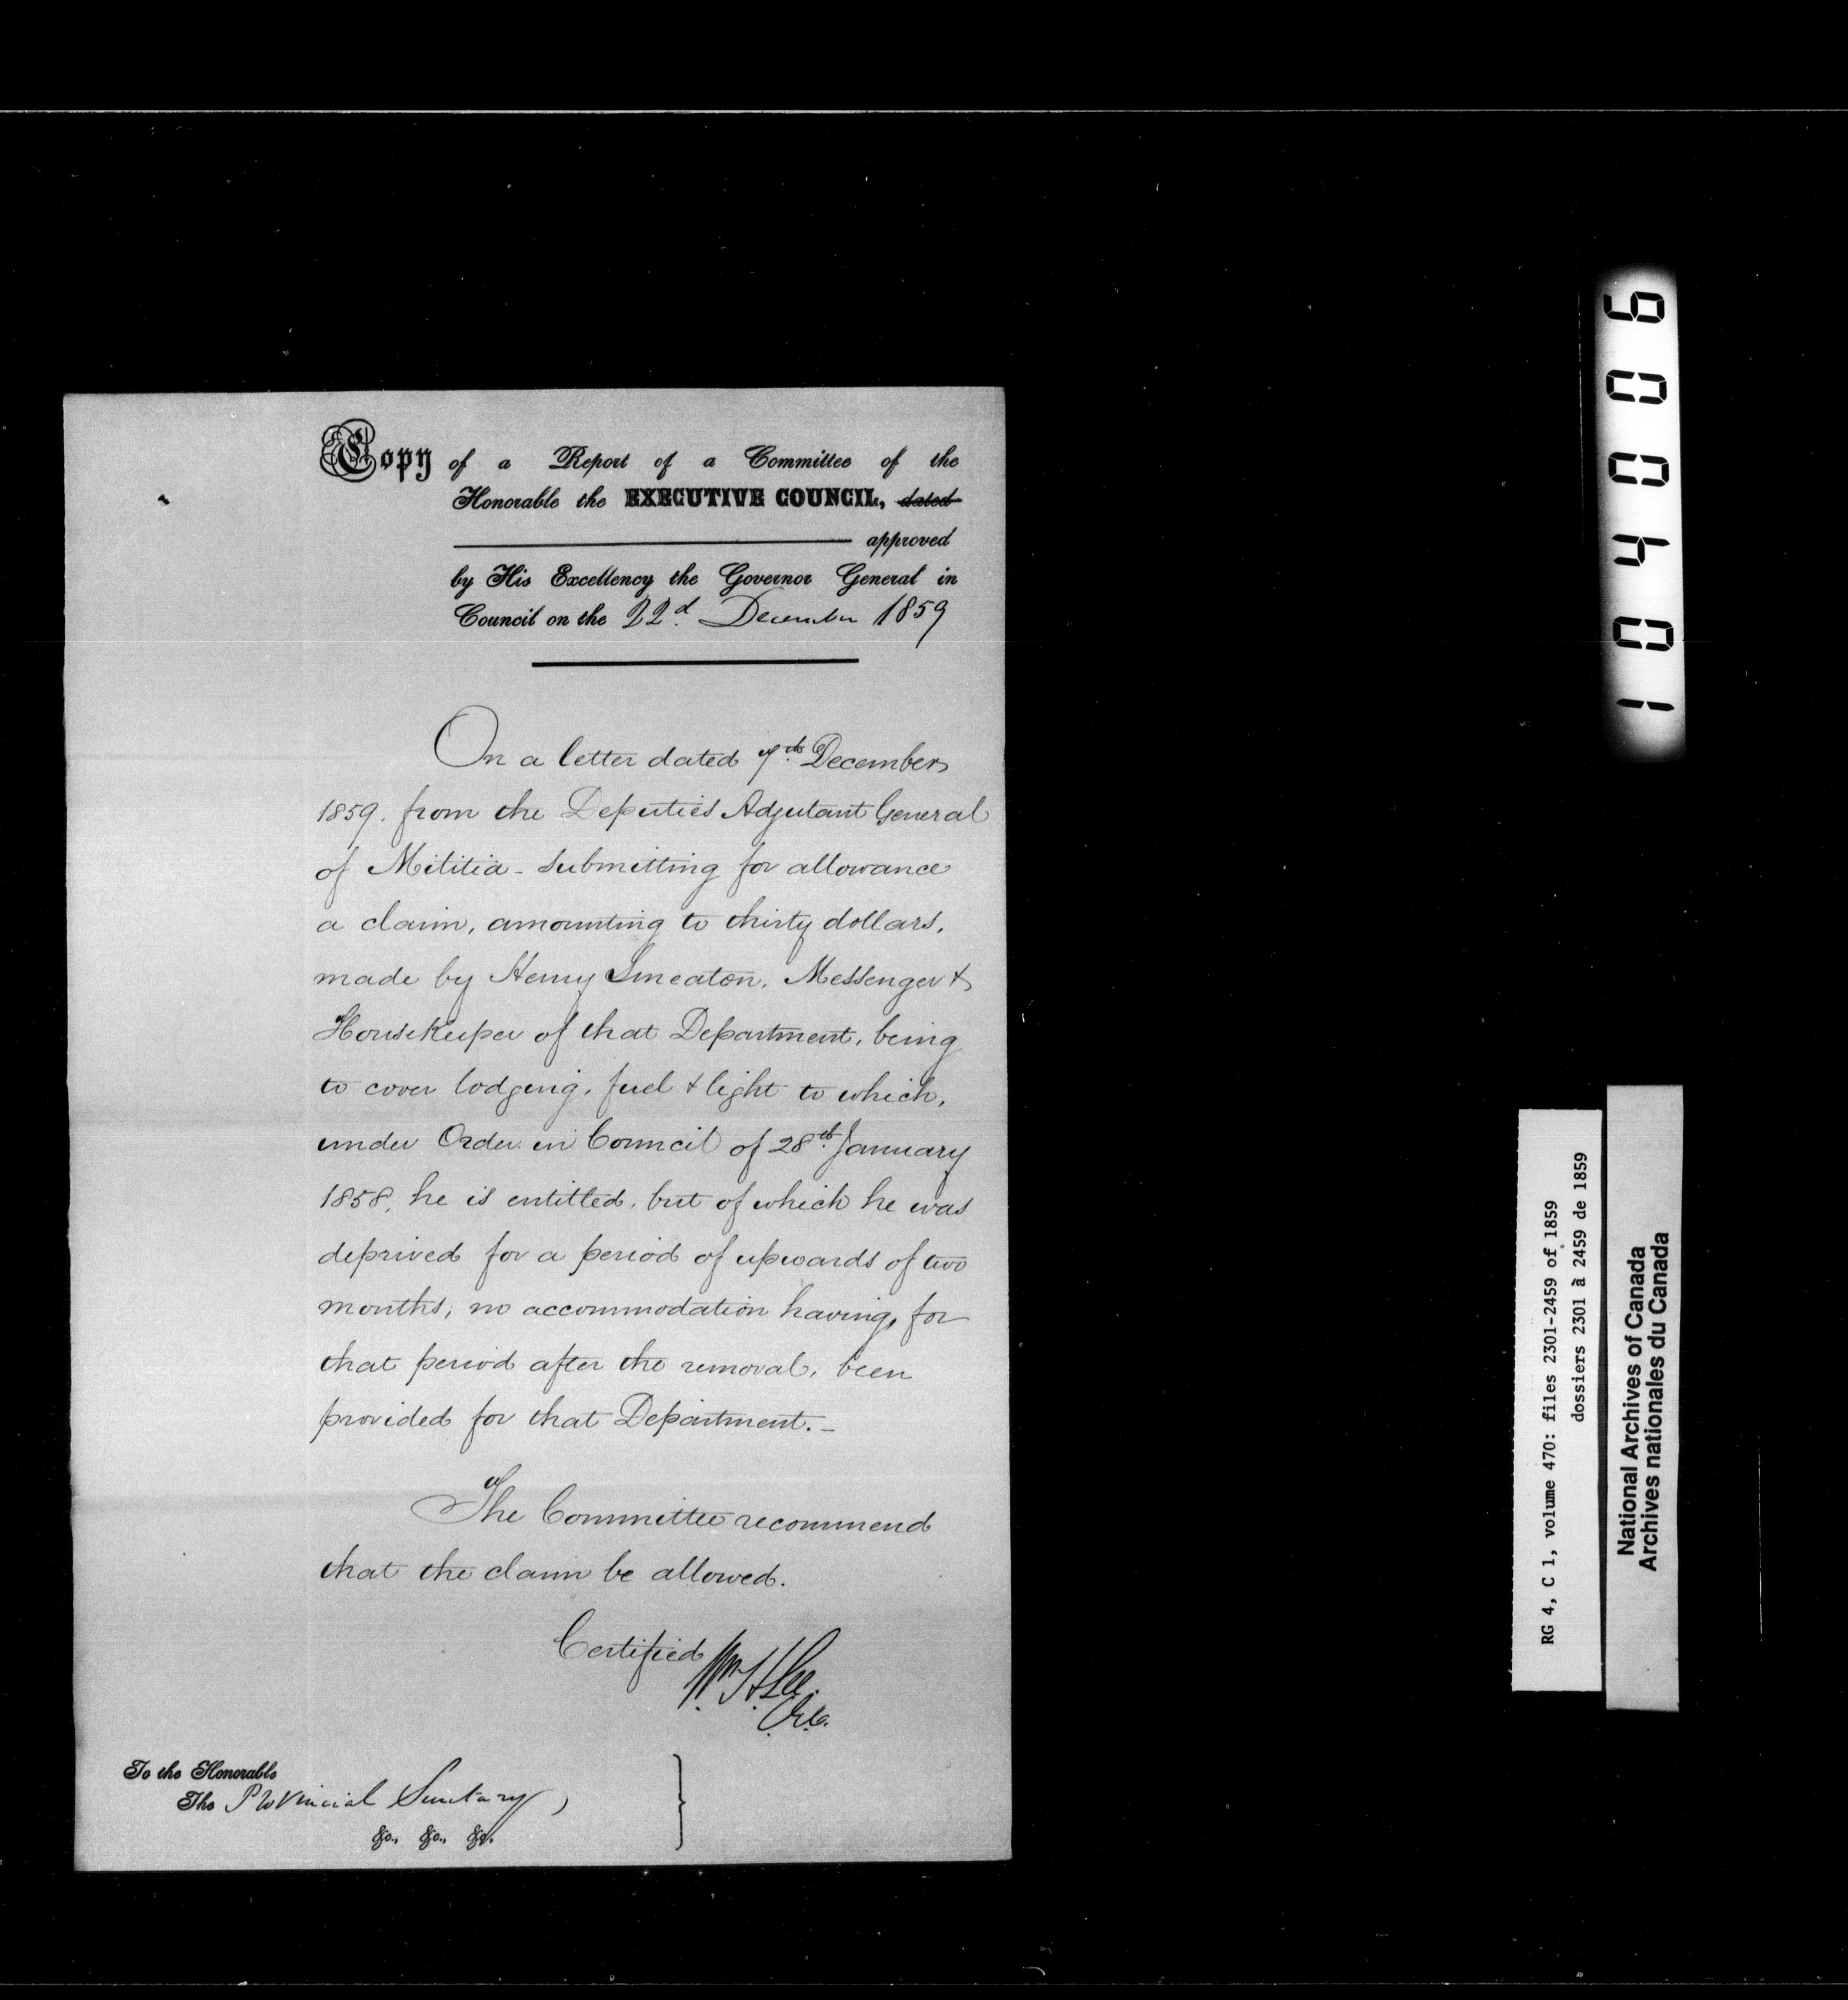 Copy of a Report of a Committee of the
Honorable the EXECUTIVE COUNCIL, dated
approved
by His Excellency the Governor General in
Council on the 22d December 1859
On a letter dated 7th December
1859. from the Deputies Adjutant General
of Militia - submitting for allowance
a claim, amounting to thirty dollars,
made by Henry Smeaton, Messenger &
Housekeeper of that Department, being
to cover lodging, fuel & light to which,
under Order in Council of 28th January
1858, he is entitled, but of which he was
deprived for a period of upwards of two
months; no accommodation having, for
that period after the removal, been
provided for that Department. -
The Committee recommend
that the claim be allowed.
Certified
Wm H Lee
To the Honorable
The Provincial Secretary,
&c., &c., &c.
104006
RG 4, C 1, volume 470: files 2301-2459 of 1859
dossiers 2301 à 2459 de 1859
National Archives of Canada
Archives nationales du Canada